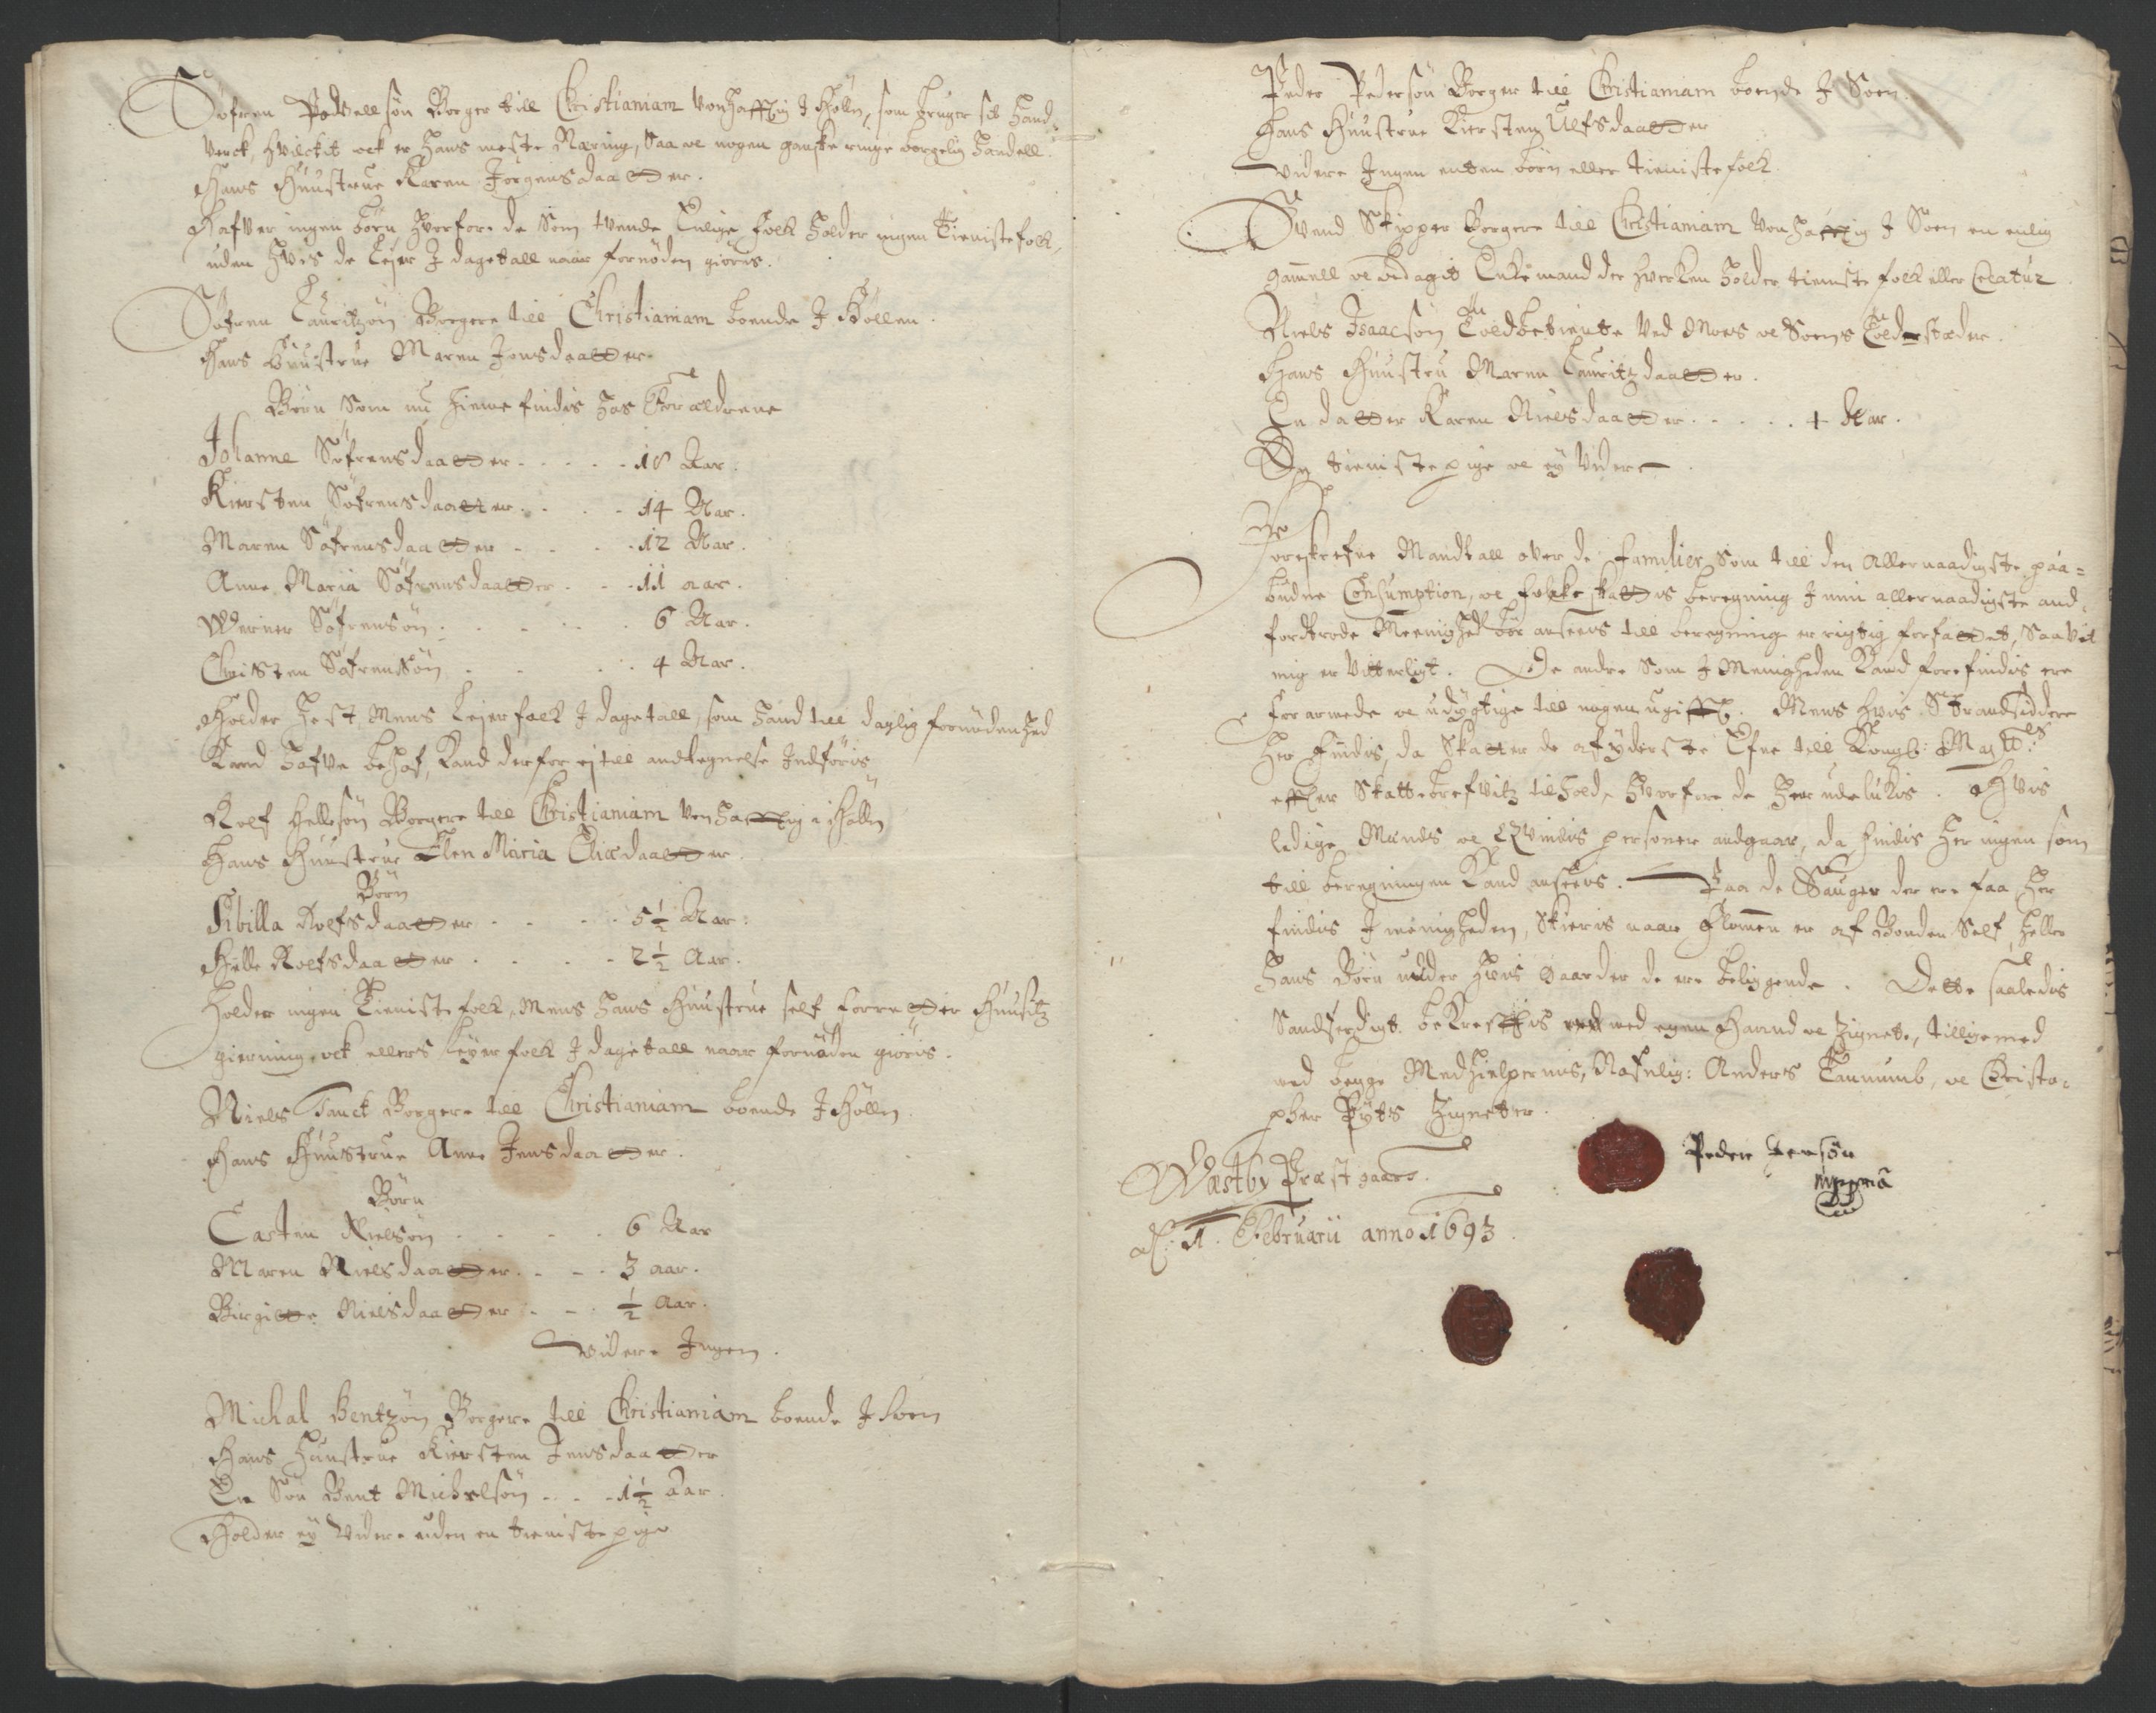 Søfren Povellsøn Borger till Christianiam vonhafftig J Hølln, som bruger sit hand-
verck, hvilcket ock er hans meste Næring, Saa oc nogen ganske ringe borgelig handell.
Hans Huustrue Karen Jørgensdaatter.
Hafver ingen børn hvorfore de som tvende Enlige folk holder ingen Tienistefolk,
uden hvis de Leyer J dagetall naar fornøden giøris.
Søfren Lauritzøn Borgere till Christianiam boende J Høllen.
Hans Huustrue Maren Jonsdaatter
Børn Som nu hieme findis hos Forældrene
Johanne Søfrensdaatter - - - - - 18 Aar.
Kiersten Søfrensdaatter - - - - 14 Aar.
Maren Søfrensdaatter - - - - - 12 Aar.
Anne Maria Søfrensdaatter - - - 11 aar.
Werner Søfrensøn - - - - - 6 Aar.
Christen Søfrensøn - - - - 4 Aar.
Holder hest, Mens Leyer folk J dagetall, som hand till daglig fornødenhed
Kand hafve behof, Kand derfor ej till andtegnelse Indføris
Rolf Hellesøn Borgere till Christianiam vonhafftig i Hølln
Hans Huustrue Elen Maria Eliædaatter
Børn
Sibilla Rolfsdaatter - - - - 5½ Aar:
Helle Rolfsdaatter - - - - 2½ Aar.
Holder ingen Tieniste folk, Mens hans Huustrue self forretter Huusitz
gierning, ock ellers Leyer folk J dagetall naar fornøden giøris.
Niels Tanck Borgere till Christianiam boende J Hølln
Hans Huustrue Anne Jensdaatter.
Børn
Casten Nielsøn - - - - 6 Aar
Maren Nielsdaatter - - - 3 aar.
Birgitte Nielsdaatter - - - ½ Aar.
Videre Ingen.
Michal Bentzøn Borgere till Christianiam boende J Soen
Hans Huustrue Kiersten Jensdaatter
En Søn Bent Michelsøn - - - 1½ Aar.
Holder ey Videre uden en tieniste pige
Peder Pedersøn Borger till Christianiam boende J Soen.
Hans Huustrue Kiersten Ulfsdaatter
Videre Ingen enten børn eller tienistefolk
Svend Skipper Borgere till Christianiam vonhafftig J Soen en enlig
gammell oc bedagit Enkemand der hverken holder tieniste folk eller Creatur
Niels Isaacsøn Toldbetiente Ved Moes oc Soens Toldstæder.
Hans Huustru Maren Lauritzdaatter.
En datter Karen Nielsdaatter - - - - 4 Aar.
En tieniste pige oc ey Videre
Foreskrefne Mandtall over de Familier Som till den Allernaadigste paa=
budne Consumption, oc folke skattis beregning J min allernaadigste and-
fordtrode Meenighed bør ansees till beregning er rigtig forfattet, Saavit
mig er Vitterligt. De andre Som J Menigheden Kand forefindis ere
forarmede oc udygtige till nogen ugifft. Mens hvis Strandsiddere
her Findis, da Skatter de af yderste Efne till Kongl: Maytt:
effter Skattebrefvitz tilhold, hvorfore de her udelukis. Hvis
ledige Mands oc Qvindis personer andgaar, da findis her ingen som
till beregningen Kand ansees. Paa de Sauger der ere faa her
findis J menigheden, Skieris naar Flommen er af Bonden Self, heller
hans Børn under hvis Gaarder de ere beliggende. Dette saaledis
Sandferdigt bekrefftis med egen Haand oc Zignete, tilligemed
med begge Medhielpernis, Nafnlig: Anders Taunumb, oc Christo-
pher Pyts Zigneter.
Wæstby Præstgaard.
d. 1. Februarii anno 1693.
Peder Jensøn
mppria